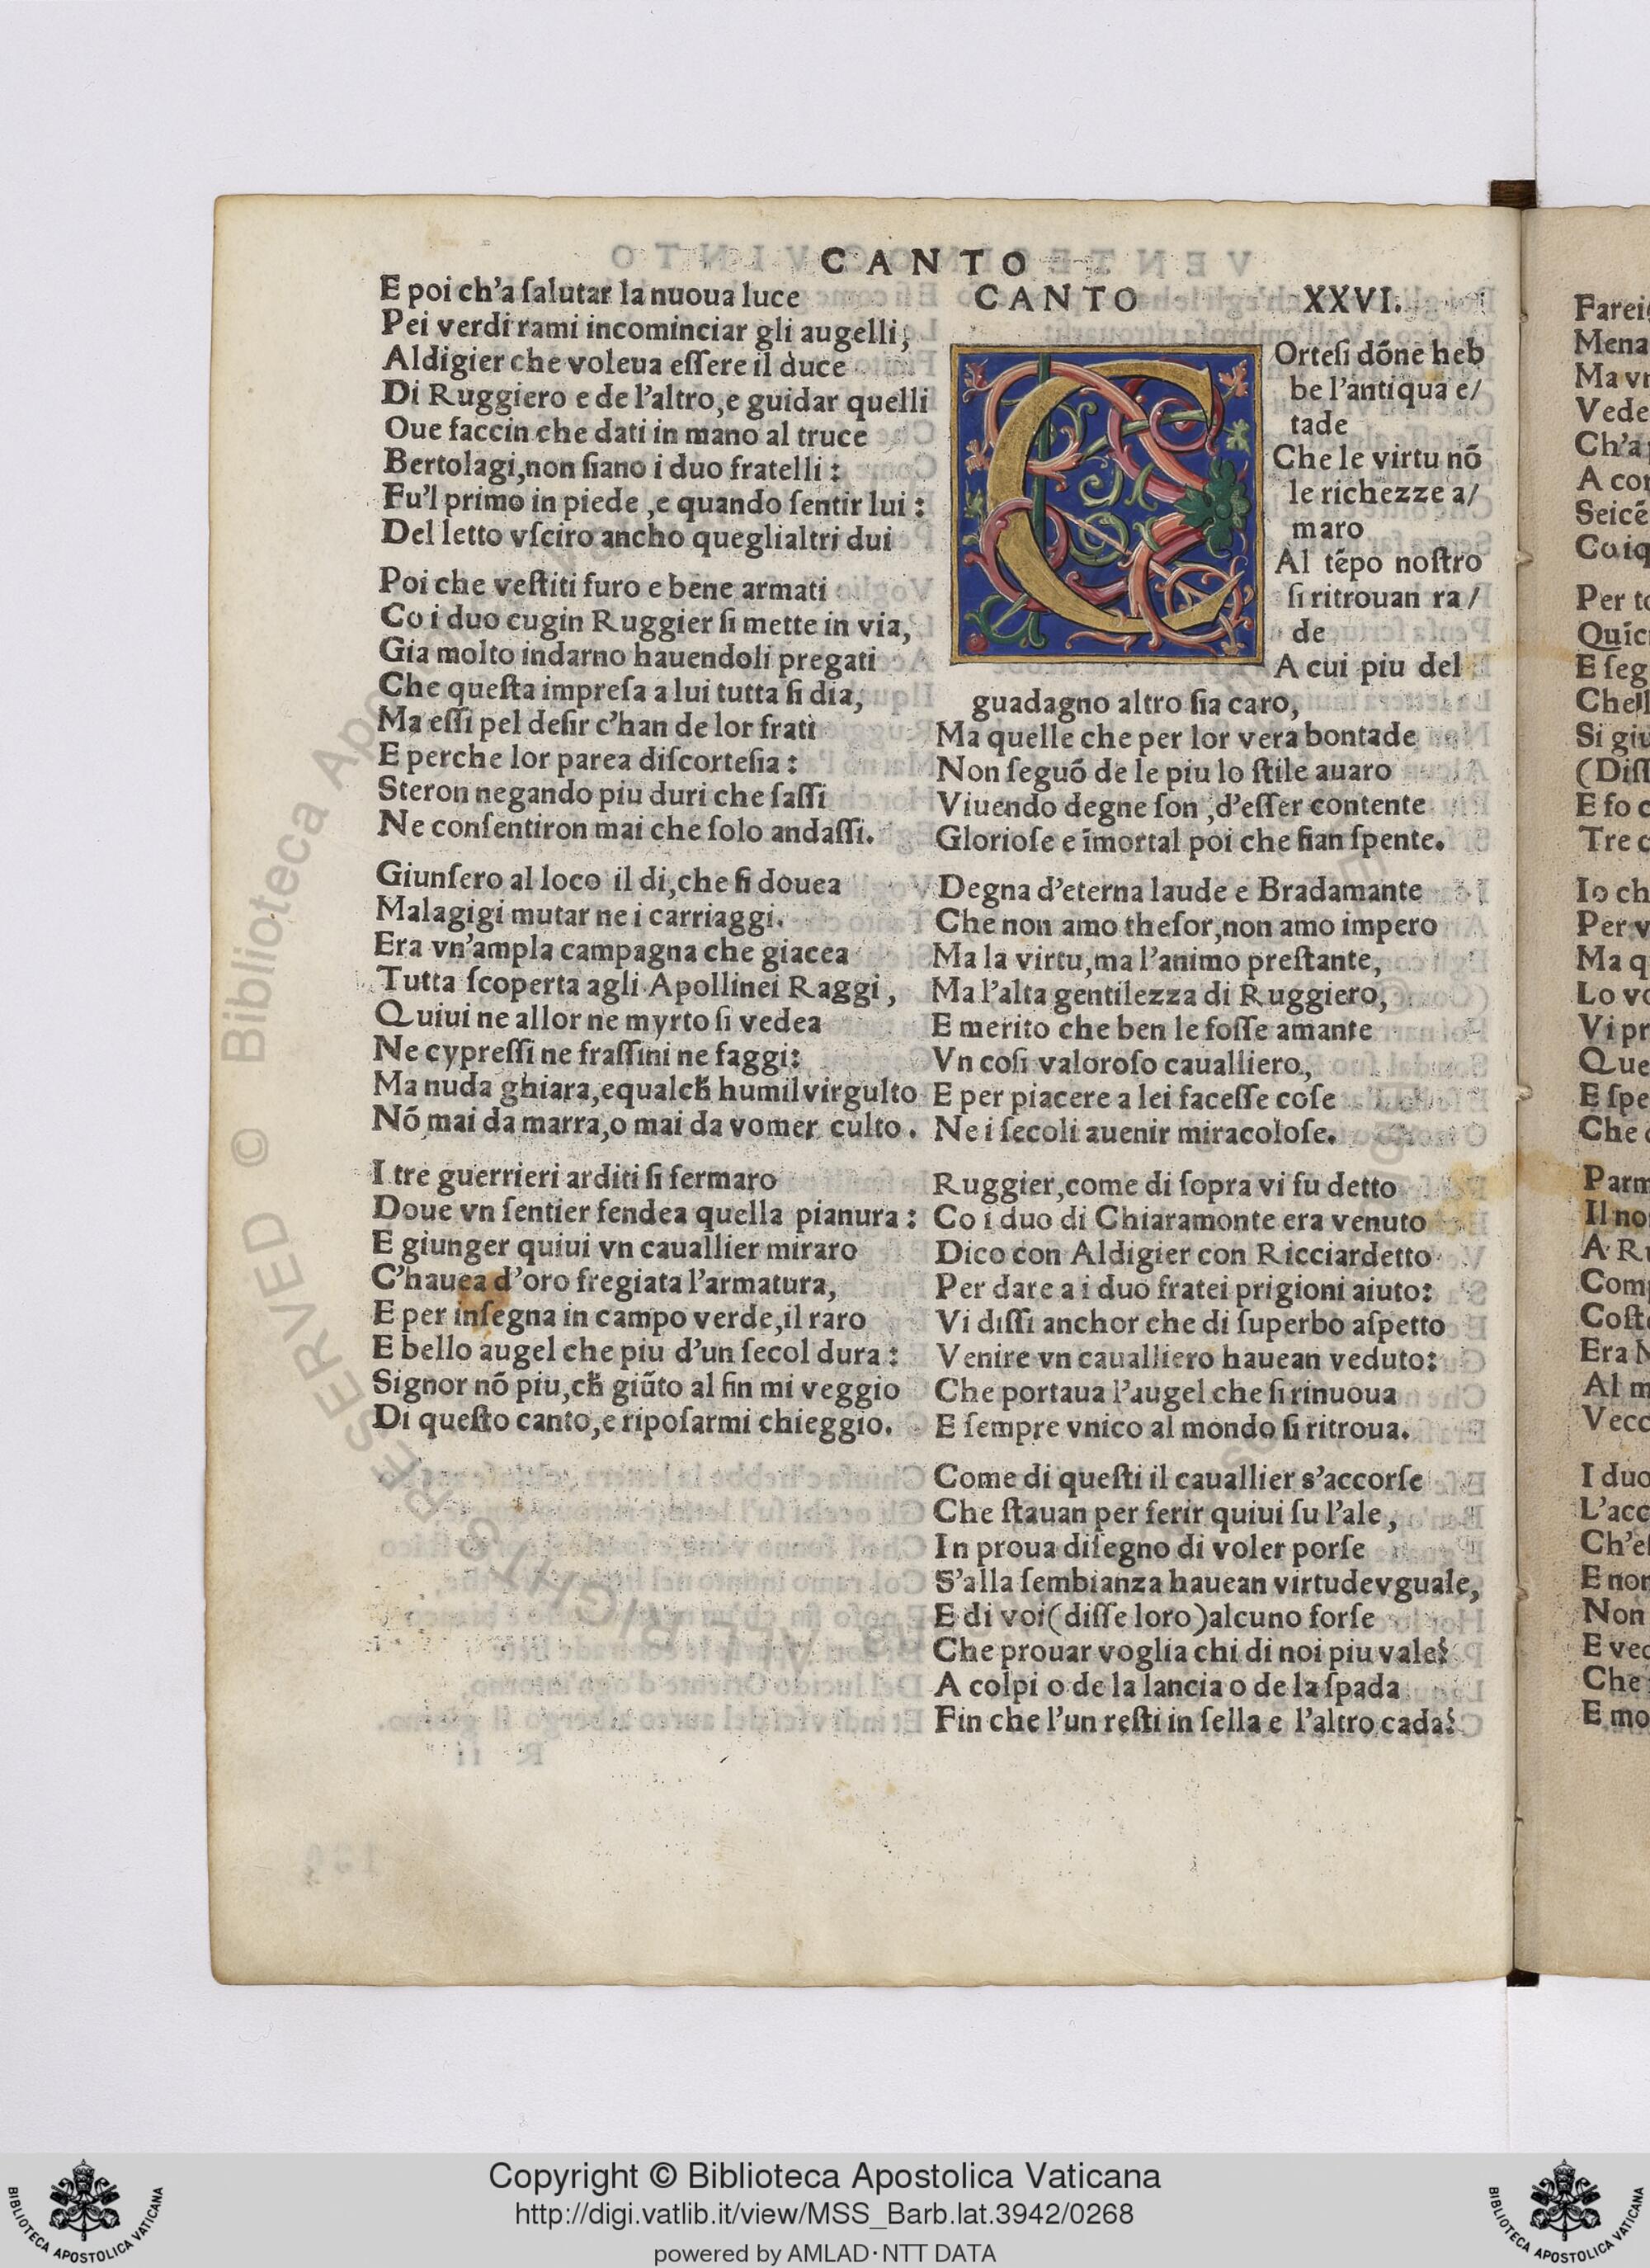 CANTO
E poi ch'a ſalutar la nuoua luce
Pei verdi rami incominciar gli augelli,
Aldigier che voleua eſſere il duce
Di Ruggiero e de l'altro,e guidar quelli
Oue faccin che dati in mano al truce
Bertolagi,non ſiano i duo fratelli :
Fu'l primo in piede ,e quando ſentir lui :
Del letto vſciro ancho queglialtri dui
Poi che veſtiti furo e bene armati
Co i duo cugin Ruggier ſi mette in via,
Gia molto indarno hauendoli pregati
Che queſta impreſa a lui tutta ſi dia,
Ma eſſi pel deſir c'han de lor frati
E perche lor parea diſcorteſia :
Steron negando piu duri che ſaſſi
Ne conſentiron mai che ſolo andaſſi.
Giunſero al loco il di,che ſi douea
Malagigi mutar ne i carriaggi.
Era vn'ampla campagna che giacea
Tutta ſcoperta agli Apollinei Raggi ,
Quiui ne allor ne myrto ſi vedea
Ne cypreſſi ne fraſſini ne faggi:
Ma nuda ghiara,equalch̃ humil virgulto
Nõ mai da marra,o mai da vomer culto .
I tre guerrieri arditi ſi fermaro
Doue vn ſentier fendea quella pianura :
E giunger quiui vn cauallier miraro
C'hauea d'oro fregiata l'armatura,
E per inſegna in campo verde,il raro
E bello augel che piu d'un ſecol dura :
Signor nõ piu,ch̃ giũto al fin mi veggio
Di queſto canto,e ripoſarmi chieggio.
CANTO XXVI.
Orteſi dõne heb
be l'antiqua e/
tade
Che le virtu nõ
le richezze a/
maro
Al tẽpo noſtro
ſi ritrouan ra/
de
A cui piu del
guadagno altro ſia caro,
Ma quelle che per lor vera bontade
Non ſeguõ de le piu lo ſtile auaro
Viuendo degne ſon ,d'eſſer contente
Glorioſe e ĩmortal poi che ſian ſpente.
Degna d'eterna laude e Bradamante
Che non amo theſor,non amo impero
Ma la virtu,ma l'animo preſtante,
Ma l'alta gentilezza di Ruggiero,
E merito che ben le foſſe amante
Vn coſi valoroſo caualliero,
E per piacere a lei faceſſe coſe
Ne i ſecoli auenir miracoloſe.
Ruggier,come di ſopra vi fu detto
Co i duo di Chiaramonte era venuto
Dico con Aldigier con Ricciardetto
Per dare a i duo fratei prigioni aiuto:
Vi diſſi anchor che di ſuperbo aſpetto
Venire vn caualliero hauean veduto:
Che portaua l'augel che ſi rinuoua
E ſempre vnico al mondo ſi ritroua.
Come di queſti il cauallier s'accorſe
Che ſtauan per ferir quiui ſu l'ale ,
In proua diſegno di voler porſe
S'alla ſembianza hauean virtudevguale,
E di voi(diſſe loro)alcuno forſe
Che prouar voglia chi di noi piu vale?
A colpi o de la lancia o de la ſpada
Fin che l'un reſti in ſella e l'altro cada?
Mena
Vede
Ch'a
Per to
Si giu
E ſo c
Tre c
Io ch
Per v
Ma q
Lo vo
Vi pr
Que
E ſpe
Che
Parm
Il no
A Ru
Era
Al m
Vecc
I duo
L'acc
E non
Non
E vec
Che
E mo
© Biblioteca Apo
RESERVED
ALL RIGHTS
Copyright © Biblioteca Apostolica Vaticana
http://digi.vatlib.it/view/MSS_Barb.lat.3942/0268
powered by AMLAD·NTT DATA
BIBLIOTECA APOSTOLICA VATICANA
BIBLIOTECA APOSTOLICA VATICANA